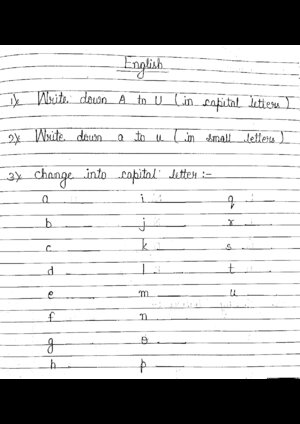 English
1) Write down A to U (in capital letters)
2) Write down a to u (in small letters)
3) change into capital letter :-
a ___ i ___ q ___
b ___ j ___ r ___
c ___ k ___ s ___
d ___ l ___ t ___
e ___ m ___ u ___
f ___ n ___
g ___ o ___
h ___ p ___